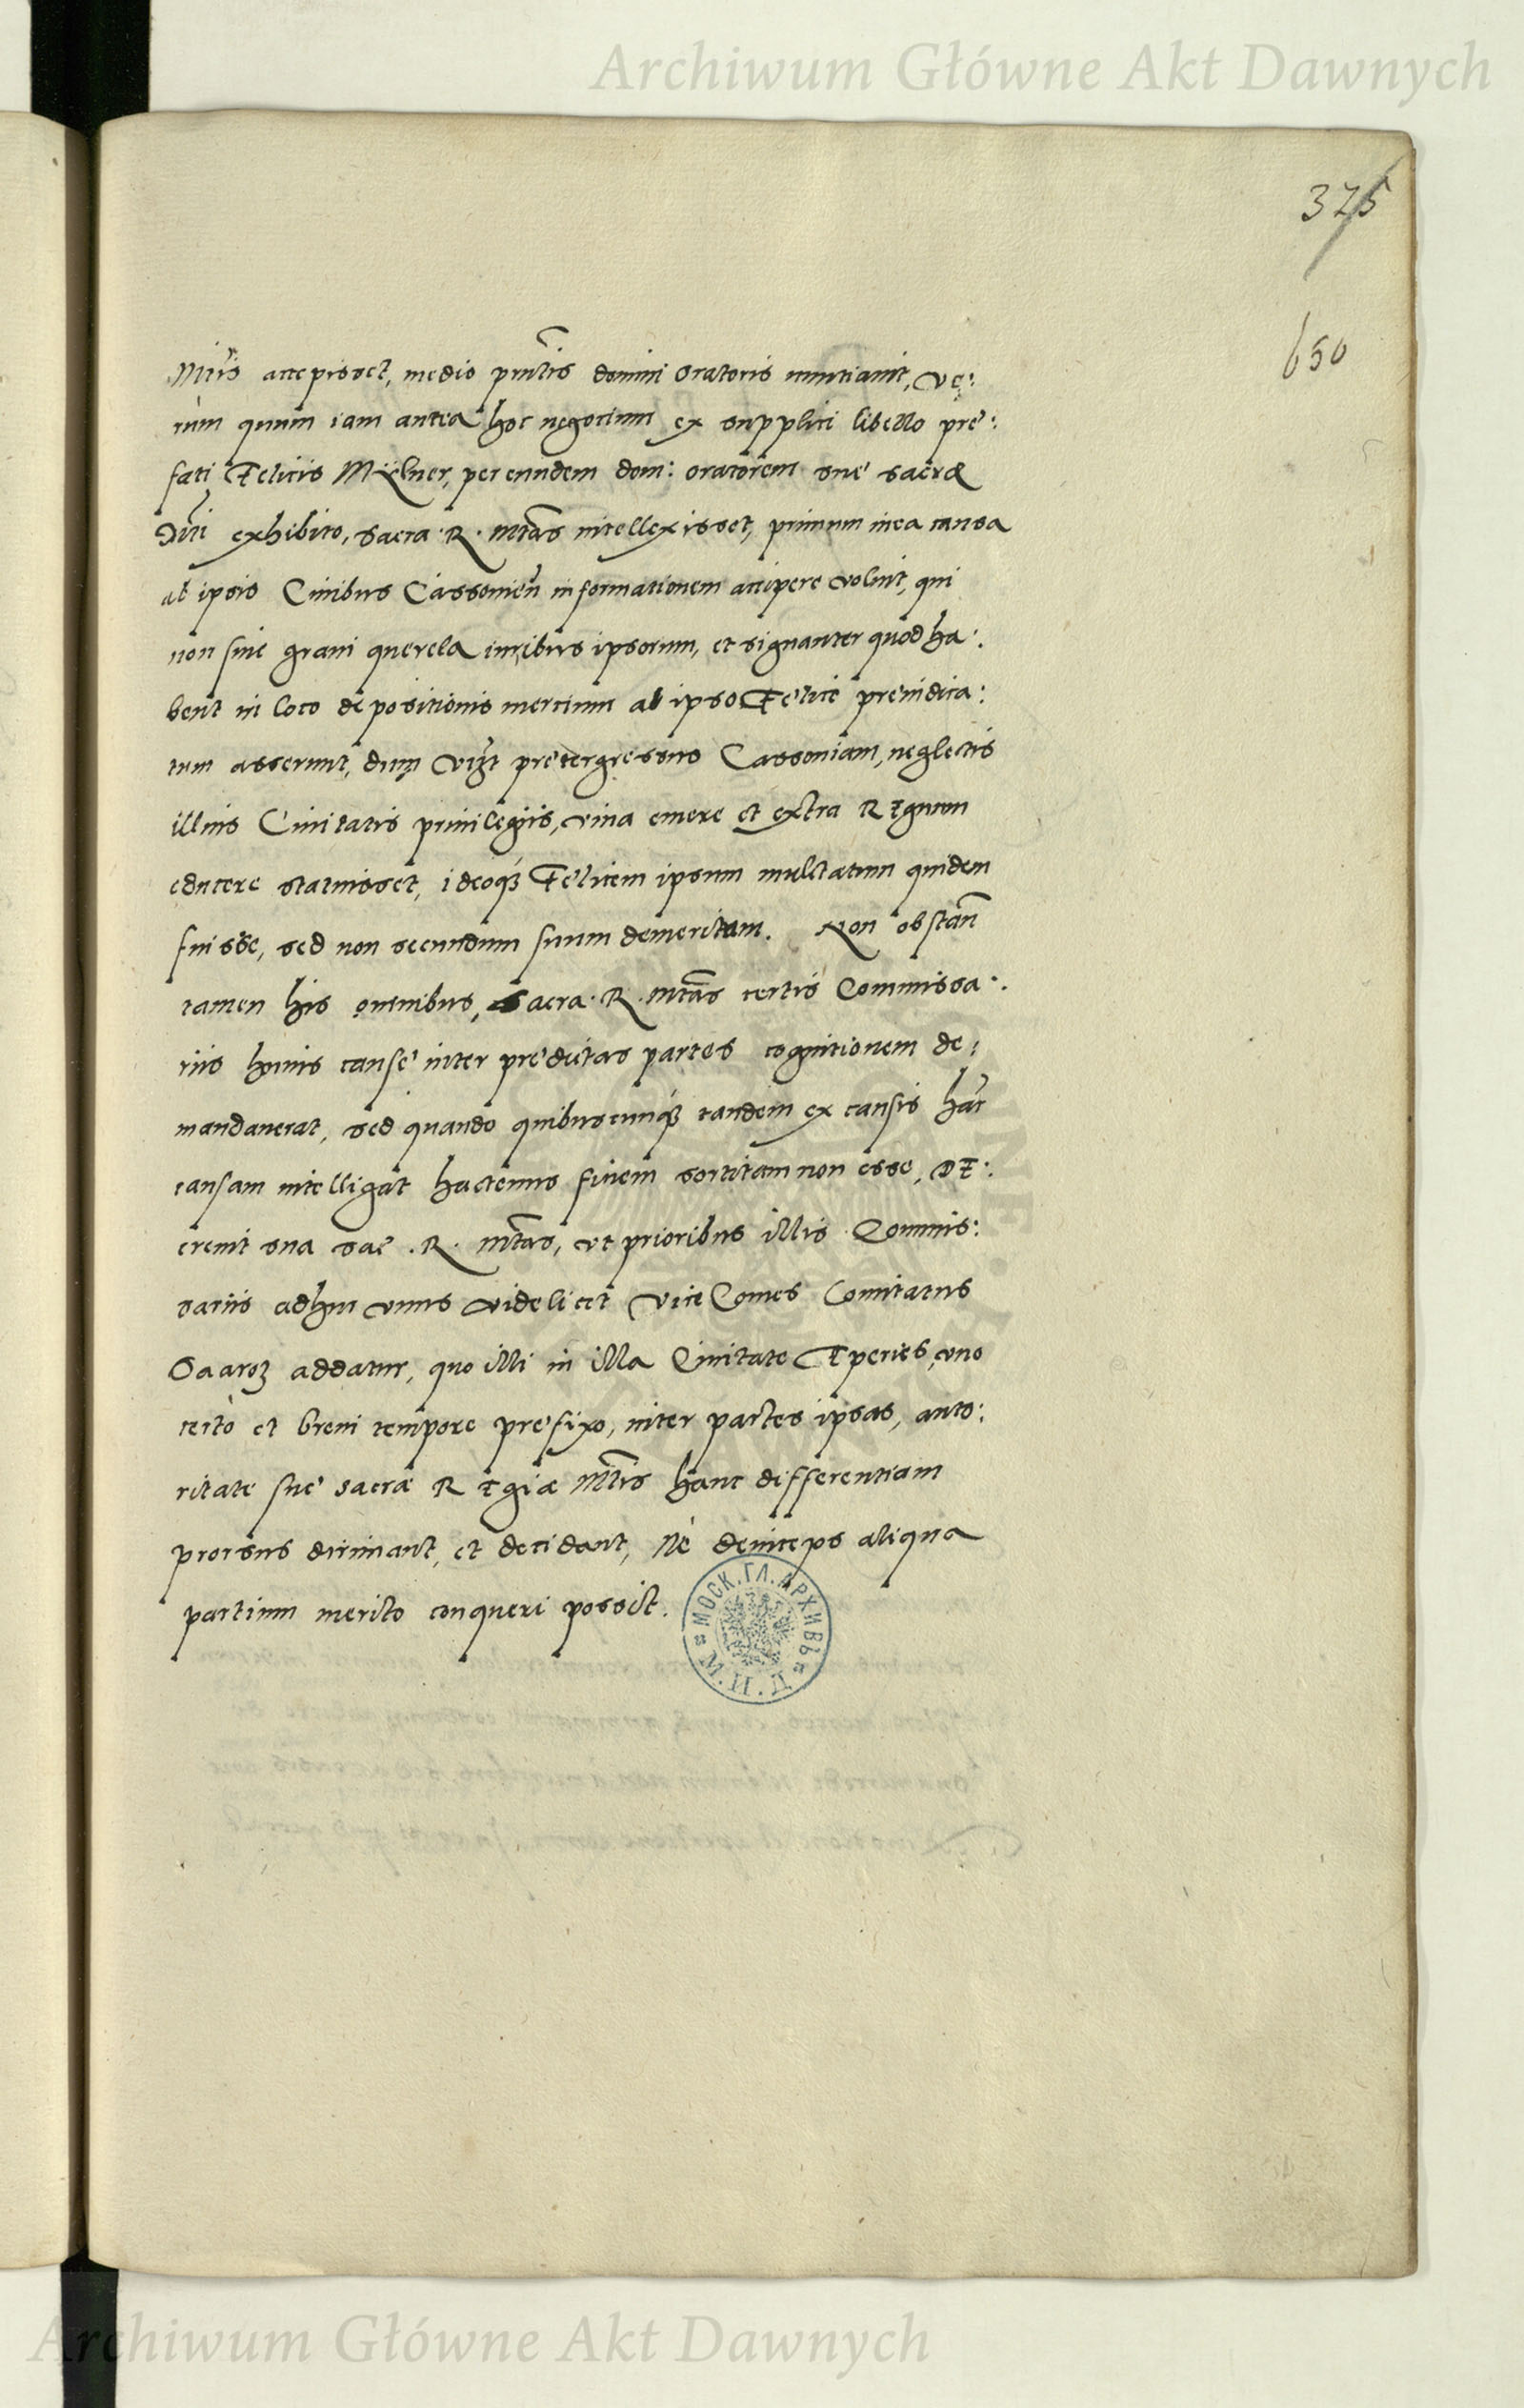 Archiwum Główne Akt Dawnych
375
650
accepisset, medio pñtis domini oratoris nuntiauit, Ve:
rùm quum iam anteà hoc negotium ex supplici libello prę:
fati Felicis Mÿlner, per eundem dom: oratorem suę sacræ
Mti exhibito, sacra. R. Mtas intellexisset, primum in ea causa
ab ipsis Ciuibus Cassouieñ informationem accipere voluit, qui
non sine graui querela iuribus ipsorum, et signanter quod ha:
bent in loco depositionis mercium ab ipso Felice pręiudica:
tum asserunt, dum vizt prętergressus Cassouiam, neglectis
illius Ciuitatis priuilegijs, vina emere et extra Regnum
educere statuisset, ideoq3 Felicem ipsum mulctatum quidem
fuisse, sed non secundum suum demeritum. Non obstañ
tamen his omnibus, Sacra. R. Mtas certis Commissa:
rijs huius causę inter prędictas partes cognitionem de:
mandauerat, sed quando quibuscunq3 tandem ex causis hac
causam intelligat hactenus finem sortitam non esse, De:
creuit sua sac. R. Mtas, vt prioribus illis Commis:
sarijs adhuc vnus videlicet ViceComes Comitatus
Saaros addatur, quo illi in illa Ciuitate Eperies, vno
certo et breui tempore pręfixo, inter partes ipsas, auto:
ritate suę sacræ Regiæ Mtis hanc differentiam
prorsus dirimant, et decidant, Nè deinceps aliqua
partium merito conqueri possit.
МОСК. ГЛ. АРХИВЪ М. И. Д.
Archiwum Główne Akt Dawnych